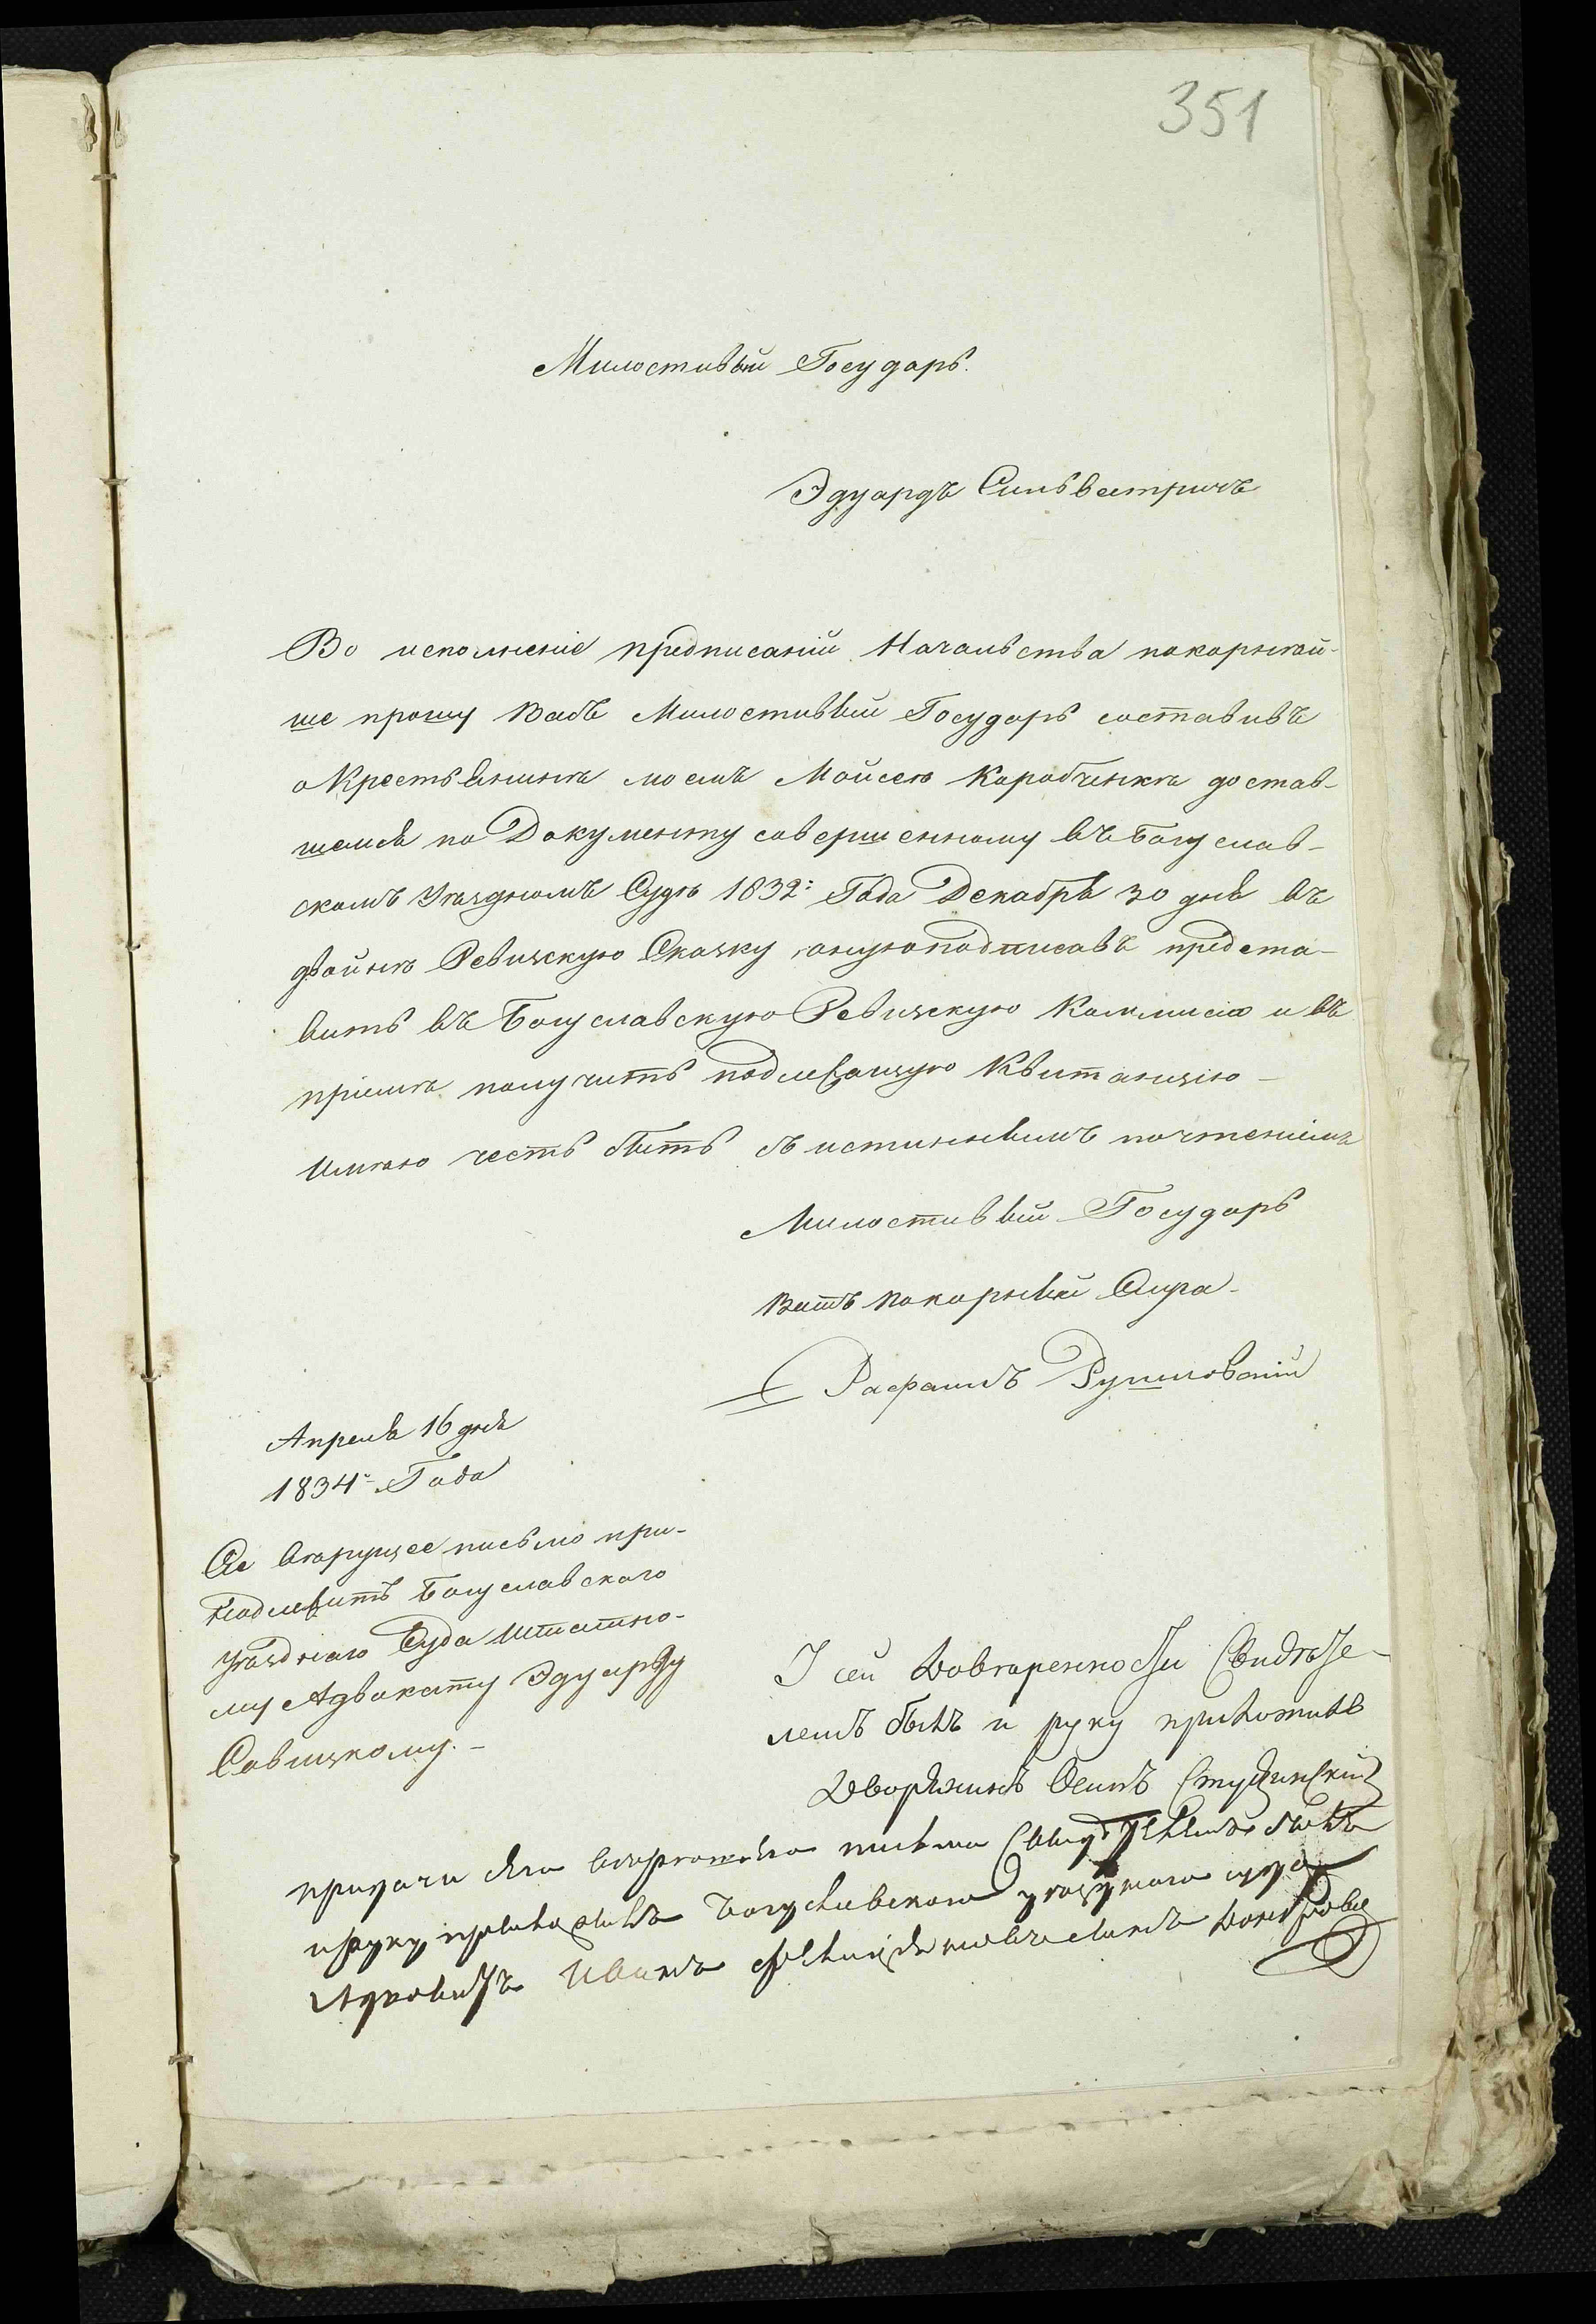 351
Милостивый Государь.
Эдуардъ Сильвестричъ
Во исполненіе предписаній Начальства покорнѣй-
ше прошу Васъ Милостивый Государь составивъ
о Крестьянинѣ моемъ Мойсею Коробченкѣ достав-
шемся по Документу совершенному въ Богуслав-
скомъ Уѣздномъ Судѣ 1832: Года Декабря 30 дня въ
двойнѣ Ревизскую Сказку, оную подписавъ предста-
вить въ Богуславскую Ревизскую Коммисію и въ
пріемѣ получить подлежащую Квитанцію -
Имѣю честь быть съ истиннымъ почтеніемъ
Милостивый Государь
Вашъ покорный Слуга -
Рафаилъ Рушновскій
Апреля 16 дня
1834: Года
Сіе вѣрующее письмо при-
надлежитъ Богуславскаго
Уѣзднаго Суда Штатно-
му Адвокату Эдуарду
Савицкому. -
У сей Довѣренности Свидѣте-
лемъ былъ и руку приложилъ
Дворянинъ Осипъ Студзинскій
при дачи сего вѣрющаго письма Свидѣтелемъ былъ
и руку приложилъ Богуславскаго уѣзднаго суда
Адвокатъ Иванъ